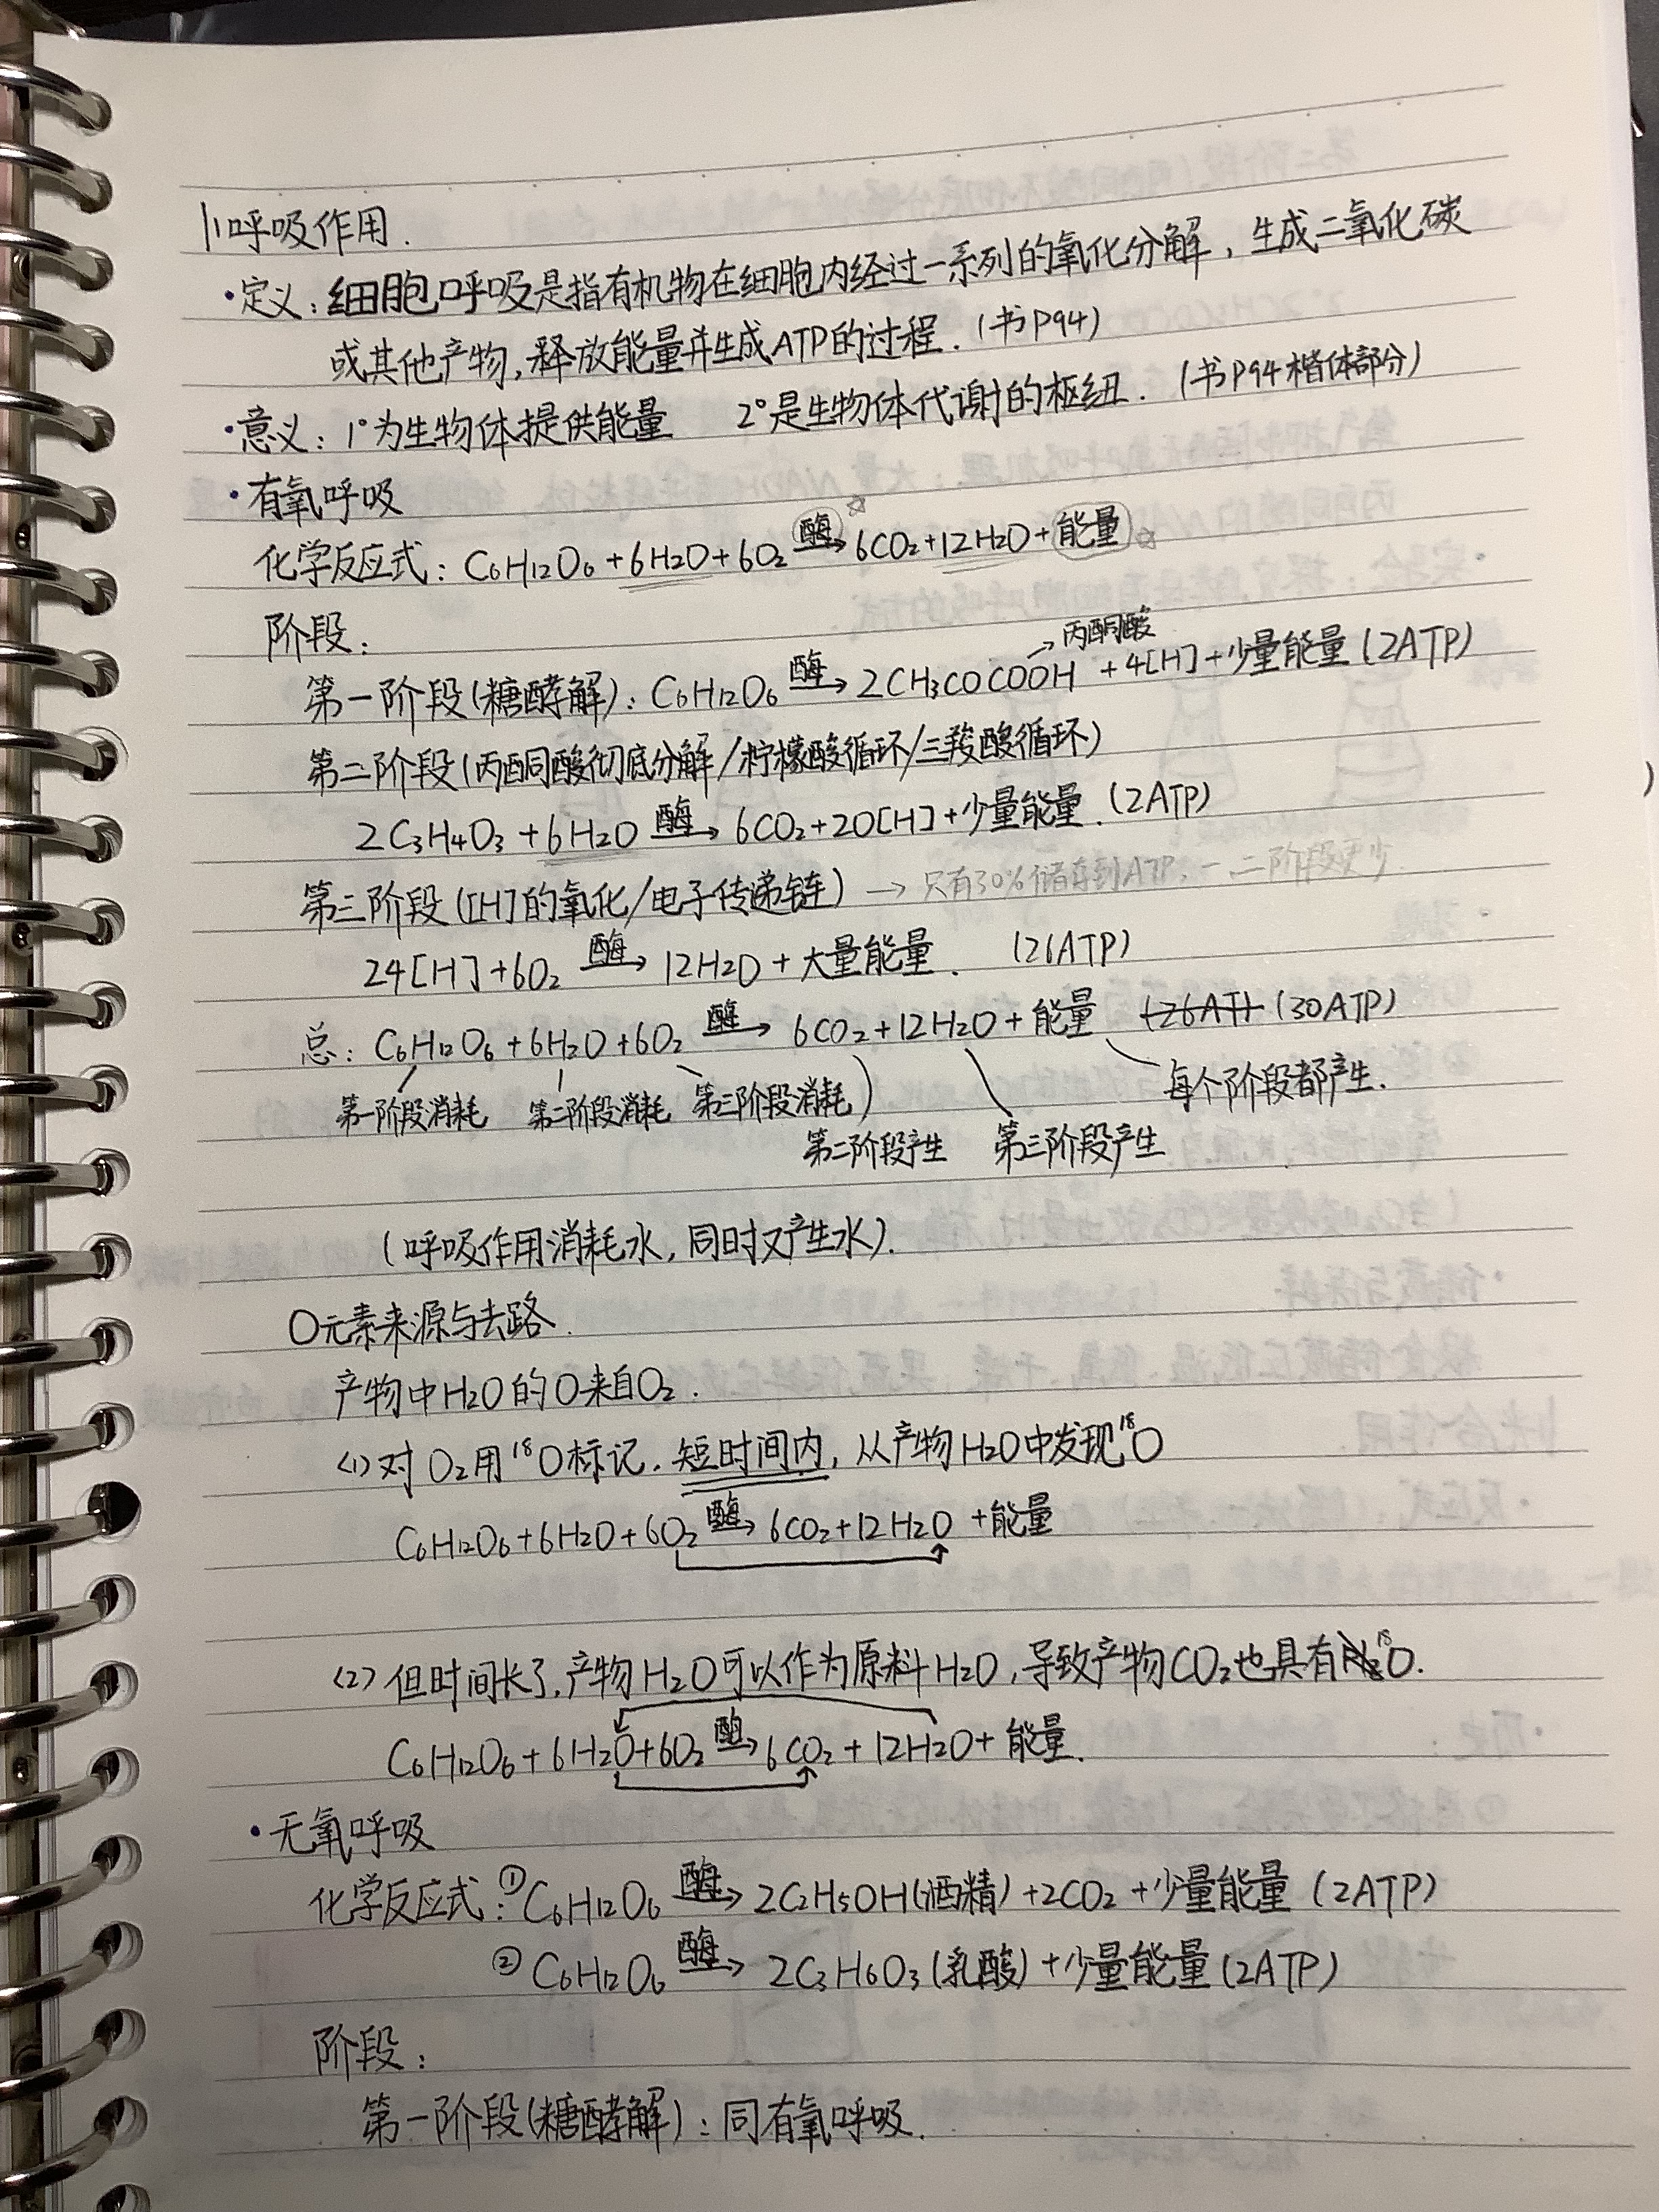 呼吸作用.
·定义:细胞呼吸是指有机物在细胞内经过一系列的氧化分解,生成二氧化碳
或其他产物,释放能量并生成ATP的过程.(书P94)
·意义:1°为生物体提供能量 2°是生物体代谢的枢纽.(书P94楷体部分)
·有氧呼吸
化学反应式:C6H12O6+6H2O+6O2 酶→ 6CO2+12H2O+能量
阶段:
→丙酮酸
第一阶段(糖酵解):C6H12O6 酶→ 2CH3COCOOH+4[H]+少量能量(2ATP)
第二阶段(丙酮酸彻底分解/柠檬酸循环/三羧酸循环)
2C3H4O3+6H2O 酶→ 6CO2+20[H]+少量能量.(2ATP)
第三阶段([H]的氧化/电子传递链)→只有30%储存到ATP,一二阶段更少.
24[H]+6O2 酶→ 12H2O+大量能量. (26ATP)
总:C6H12O6+6H2O+6O2 酶→ 6CO2+12H2O+能量 (30ATP)
第一阶段消耗 第二阶段消耗 第三阶段消耗 每个阶段都产生.
第二阶段产生 第三阶段产生
(呼吸作用消耗水,同时又产生水).
O元素来源与去路.
产物中H2O的O来自O2.
<1>对O2用¹⁸O标记.短时间内,从产物H2O中发现¹⁸O
C6H12O6+6H2O+6O2 酶→ 6CO2+12H2O+能量
<2>但时间长了,产物H2O可以作为原料H2O,导致产物CO2也具有¹⁸O.
C6H12O6+6H2O+6O2 酶→ 6CO2+12H2O+能量.
·无氧呼吸
化学反应式:①C6H12O6 酶→ 2C2H5OH(酒精)+2CO2+少量能量(2ATP)
②C6H12O6 酶→ 2C3H6O3(乳酸)+少量能量(2ATP)
阶段:
第一阶段(糖酵解):同有氧呼吸.